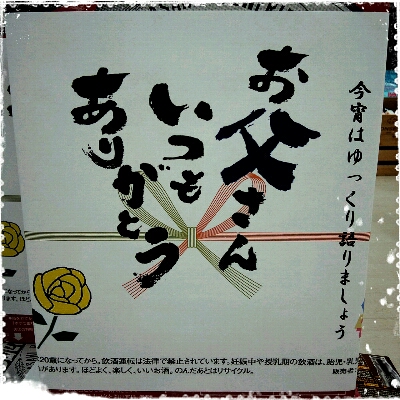 今宵はゆっくり語りましょう
お父さん
いつも
ありがとう
20歳になってから。飲酒運転は法律で禁止されています。妊娠中や授乳期の飲酒は、胎児・乳
があります。ほどよく、楽しく、いいお酒。のんだあとはリサイクル。